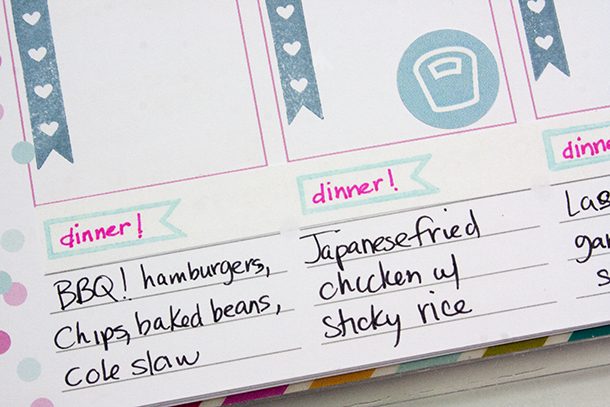 dinner!
BBQ! hamburgers,
Chips, baked beans,
Cole slaw
dinner!
Japanese fried
chicken w/
sticky rice
dinn
Las
gar
s